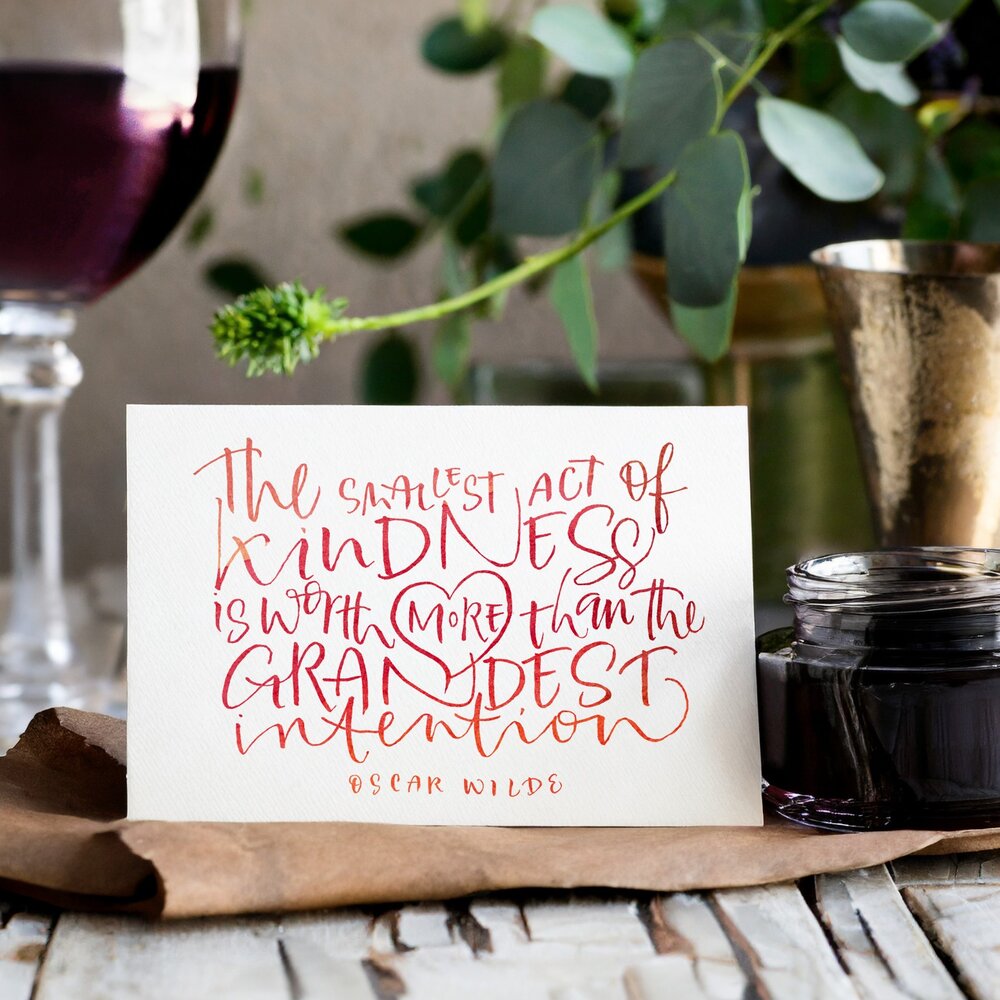 The SMALLEST ACT of
KiNDNESS
is worth MORE than the
GRANDEST
intention
OSCAR WILDE